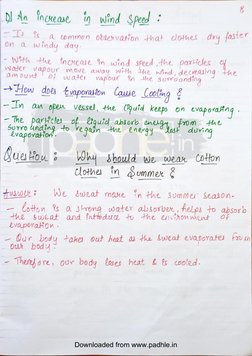 8
D) An increase in wind speed :
- It is a common observation that clothes dry faster
on a windy day.
- With the increase in wind speed, the particles of
water vapour move away with the wind, decreasing the
amount of water vapour in the surrounding.
→ How does Evaporation Cause Cooling ?
- In an open vessel, the liquid keeps on evaporating.
- The particles of liquid absorb energy from the
surrounding to regain the energy lost during
evaporation.
Question : Why should we wear cotton
clothes in Summer ?
Answer : We sweat more in the summer season.
- Cotton is a strong water absorber, helps to absorb
the sweat and introduce to the environment of
evaporation.
- Our body takes out heat as the sweat evaporates from
our body.
- Therefore, our body loses heat & is cooled.
Downloaded from www.padhle.in